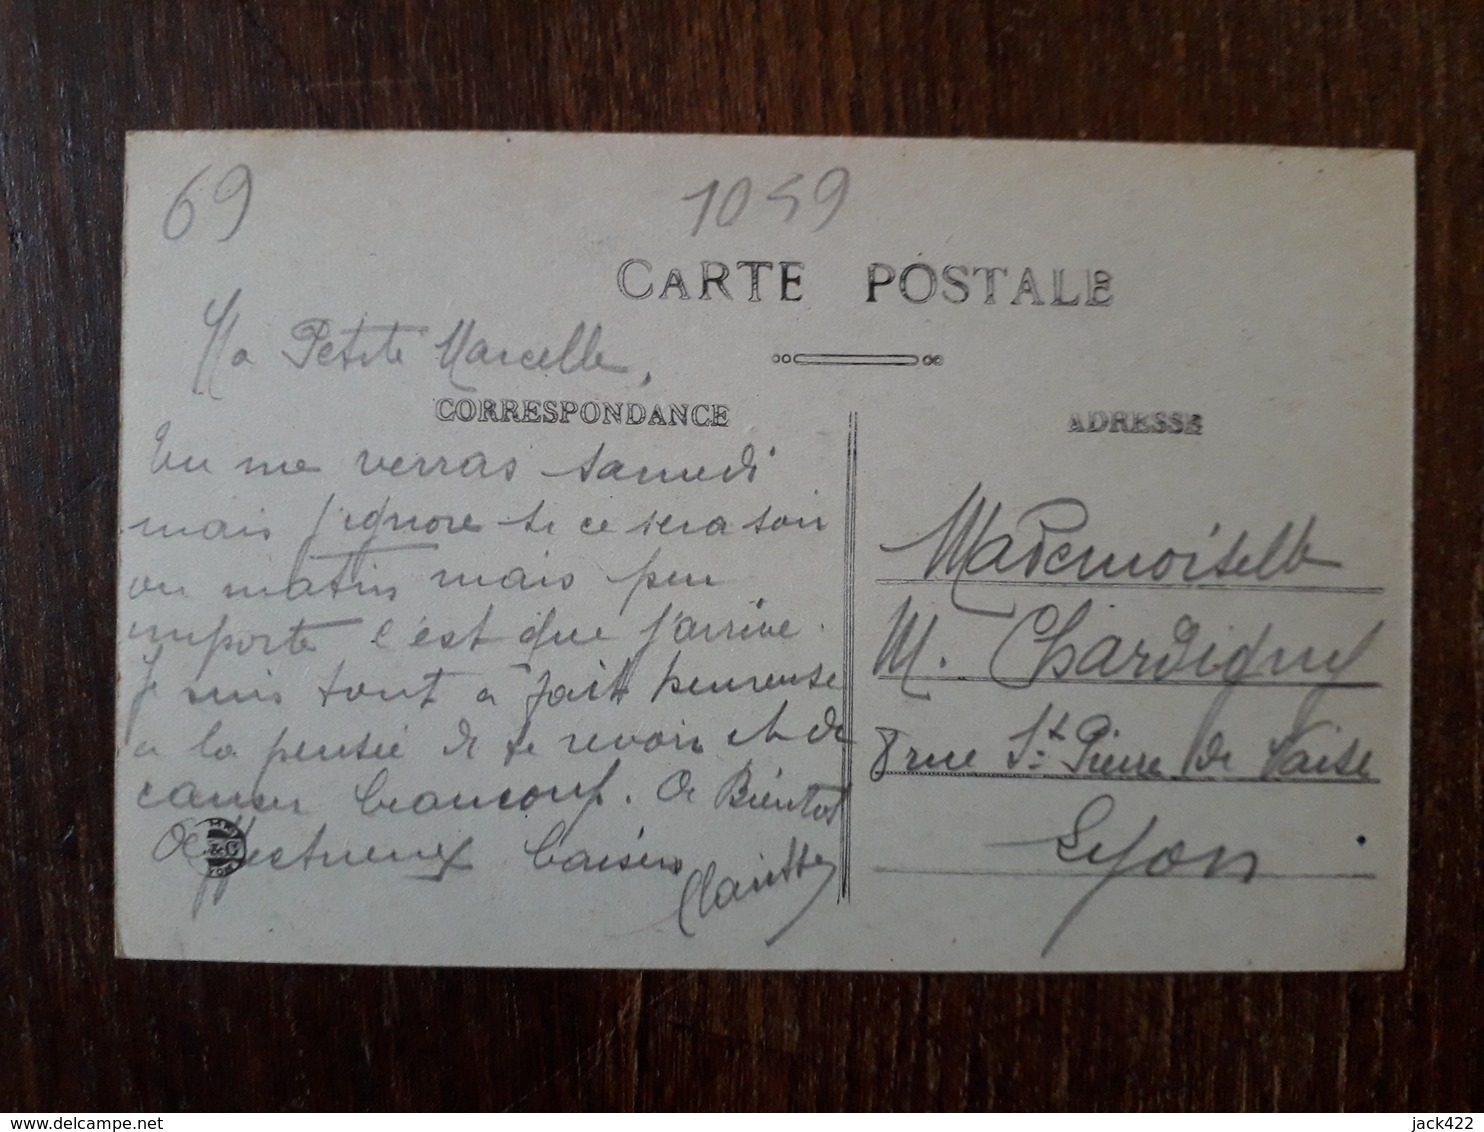 69
1059
CARTE POSTALE
Ma Petite Marcelle,
CORRESPONDANCE
Tu me verras samedi
mais j'ignore si ce sera soir
ou matin mais peu
importe c'est que j'arrive.
Je suis tout à fait heureuse
a la pensée de te revoir et de
causer beaucoup. A Bientot
Affectueux baisers
ADRESSE
Mademoiselle
M. Chardigny
8 rue St. Pierre de Vaise
Lyon
jack422